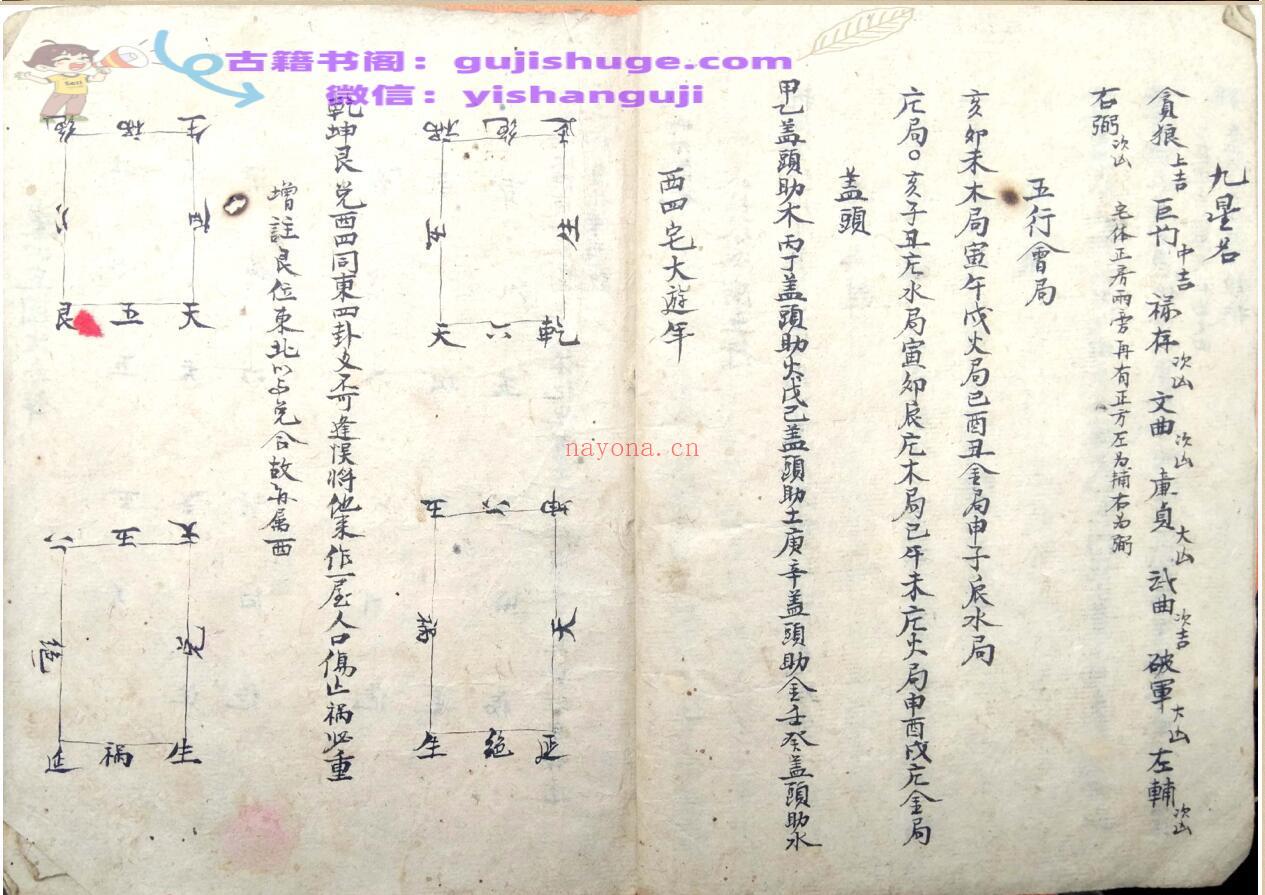 古籍书阁：gujishuge.com
微信：yishanguji
nayona.cn
九星名
貪狼上吉 巨门中吉 禄存次凶 文曲次凶 廉貞大凶 武曲次吉 破軍大凶 左輔次凶
右弼次凶 宅体正房兩旁再有正方左为輔右为弼
五行會局
亥卯未木局寅午戌火局巳酉丑金局申子辰水局
庀局〇亥子丑庀水局寅卯辰庀木局巳午未庀火局申酉戌庀金局
盖頭
甲乙盖頭助木丙丁盖頭助火戊己盖頭助土庚辛盖頭助金壬癸盖頭助水
西四宅大遊年
延 絶 禍
生 五
乾 六 天
坤 六 五
天 禍
延 絶 生
乾坤艮兑西四同東四卦爻不可逢悞將他来作一屋人口傷亡禍必重
增註艮位東北以与兑合故亦属西
生 禍 絶
延 六
天 五 艮
天 五 六
兑 絶
生 禍 延